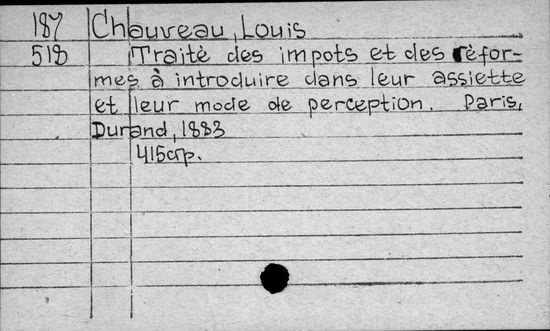 187 Chauveau, Louis
518 Traitè des impots et des rèfor-
mes à introduire dans leur assiette
et leur mode de perception. Paris,
Durand, 1883
415 p.